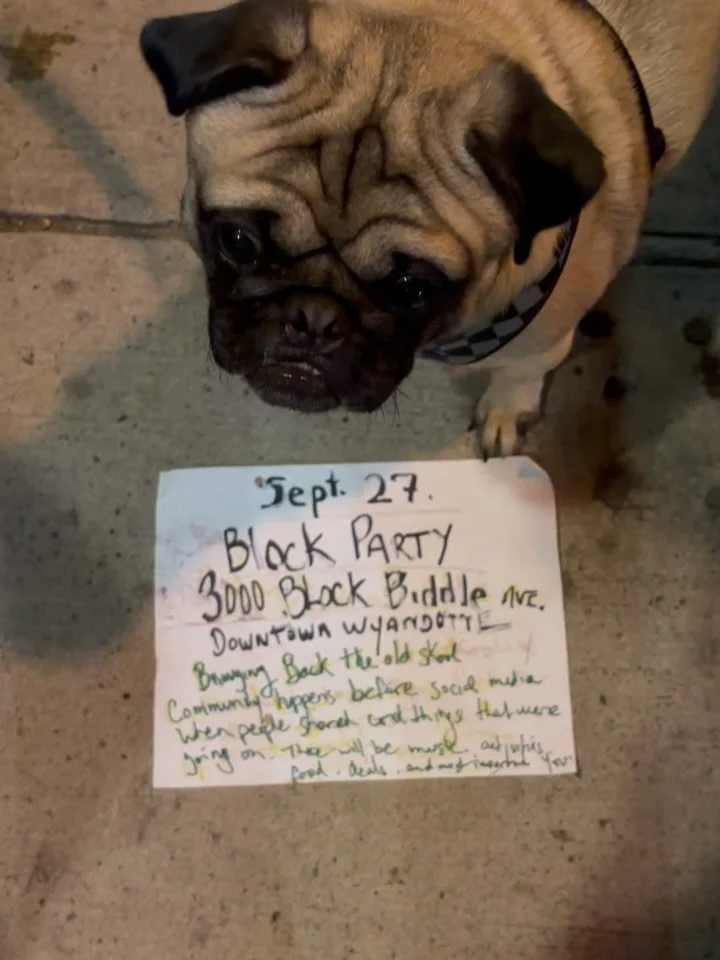 Sept. 27.
BLOCK PARTY
3000 BLOCK Biddle AVE.
DOWNTOWN WYANDOTTE
Bringing Back the old skool
Community happens before social media
when people shared cool things that were
going on. There will be music. activities,
food. deals. and most important You